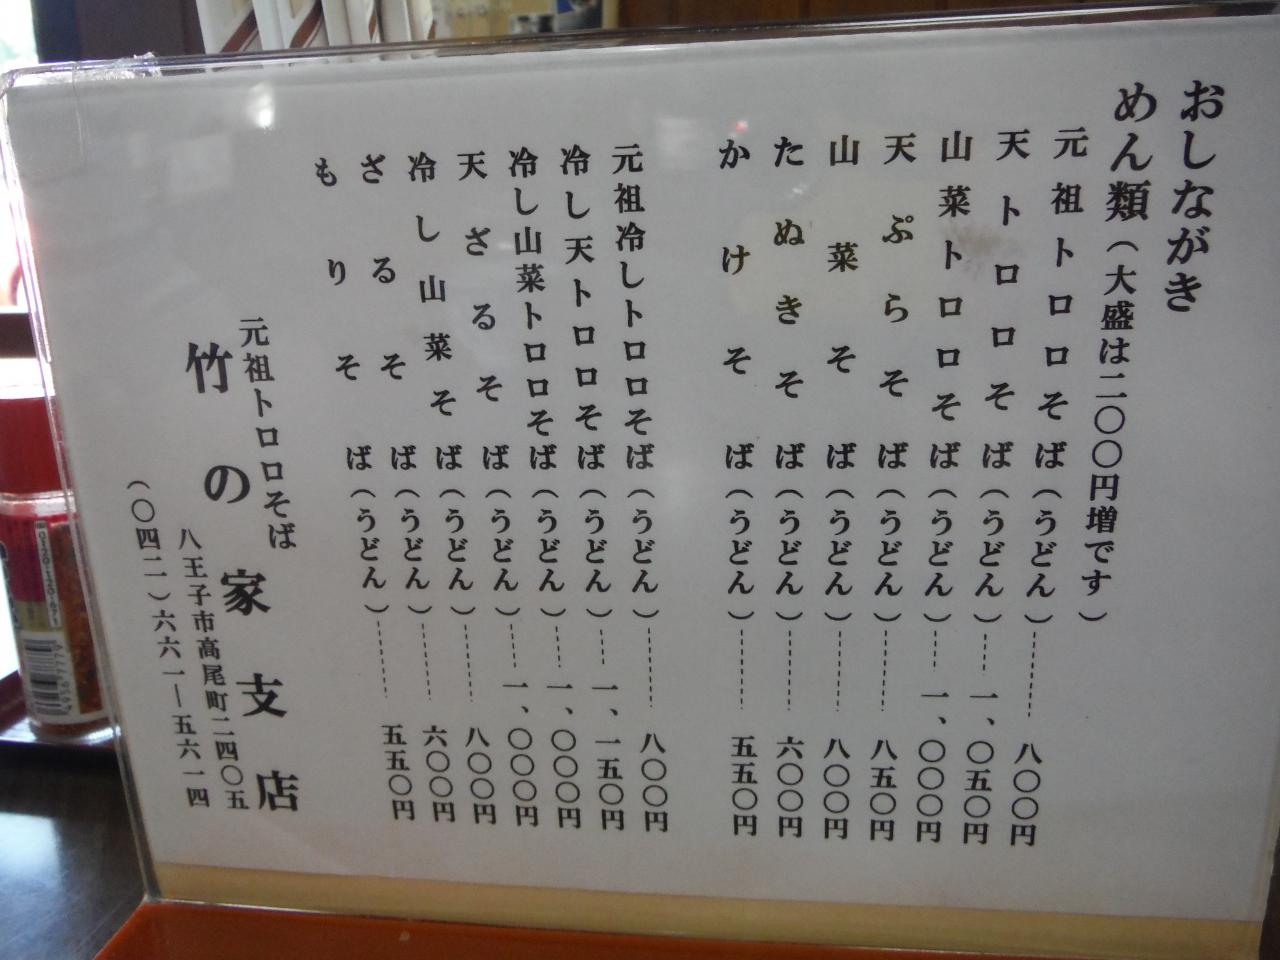 おしながき
めん類(大盛は二〇〇円増です)
元祖トロロそば(うどん)……八〇〇円
天トロロそば(うどん)……一、〇五〇円
山菜トロロそば(うどん)……一、〇〇〇円
天ぷらそば(うどん)……八五〇円
山菜そば(うどん)……八〇〇円
たぬきそば(うどん)……六〇〇円
かけそば(うどん)……五五〇円
元祖冷しトロロそば(うどん)……八〇〇円
冷し天トロロそば(うどん)……一、一五〇円
冷し山菜トロロそば(うどん)……一、〇〇〇円
天ざるそば(うどん)……一、〇〇〇円
冷し山菜そば(うどん)……八〇〇円
ざるそば(うどん)……六〇〇円
もりそば(うどん)……五五〇円
元祖トロロそば
竹の家支店
八王子市高尾町二四〇五
(〇四二)六六一―五六一四